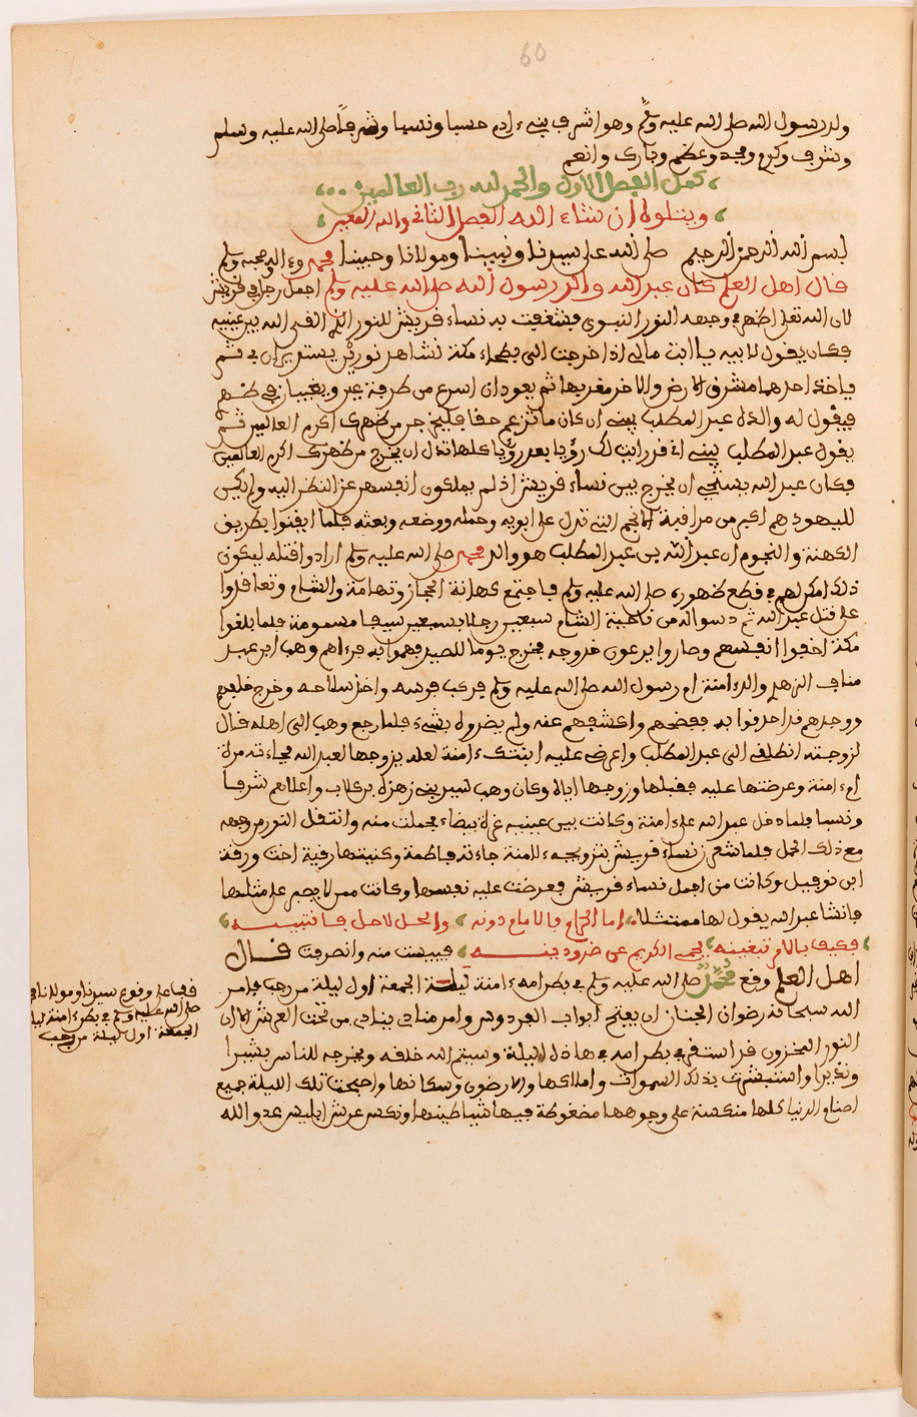 60
ولد رسول الله صلى الله عليه وسلم وهو اشرف بني ءادم حسبا ونسبا وشرفا صلى الله عليه وسلم
وشرف وكرم ومجد وعظم وبارك وانعم
كمل الفصل الاول والحمد لله رب العالمين
ويتلوه ان شاء الله الفصل الثاني والله المعين
بسم الله الرحمن الرحيم صلى الله على سيدنا ونبينا ومولانا وحبيبنا محمد وءاله وصحبه وسلم
قال اهل العلم كان عبد الله والد رسول الله صلى الله عليه وسلم اجمل رجل في قريش
لان الله تعلى اظهر في وجهه النور النبوي فشغفت به نساء قريش للنور الذي القى الله بين عينيه
فكان يقول لابيه يا ابت مالي اذا خرجت الى بطحاء مكة نشاهد نورين يستديران في ثم
ياخذ احدهما مشرق الارض والاخر مغربها ثم يعودان اسرع من طرفة عين ويغيبان في ظهري
فيقول له والده عبد المطلب يبني ان كان ما تزعم حقا فليخرجن من ظهرك اكرم العالمين ثم
يقول عبد المطلب يبني اني قد رايت لك رؤيا بعد رؤيا كلها تدل ان يخرج من ظهرك اكرم العالمين
فكان عبد الله يستحي ان يخرج بين نساء قريش اذ لم يملكون انفسهن عن النظر اليه ولم يكن
لليهود هم اكبر من مراقبة الانجم التي تدل على ابويه وحمله ووضعه وبعثه فلما ايقنوا بطريق
الكهنة والنجوم ان عبد الله بن عبد المطلب هو والد محمد صلى الله عليه وسلم ارادوا قتله ليكون
ذلك امكن لهم في قطع ظهوره صلى الله عليه وسلم فاجتمع كهانة الحجاز وتهامة والشام وتعاقدوا
على قتل عبد الله ثم دسوا له من ناحية الشام سبعين رجلا بسبعين سيفا مسمومة فلما بلغوا
مكة اخفوا انفسهم وصاروا يرعون خروجه فخرج يوما للصيد فهموا به فرءاهم وهب ابن عبد
مناف الزهري والد ءامنة ام رسول الله صلى الله عليه وسلم فركب فرسه واخذ سلاحه وخرج خلفهم
فوجدهم قد احدقوا به ففضهم وكشفهم عنه ولم يضروه بشيء فلما رجع وهب الى اهله قال
لزوجته انطلقي الى عبد المطلب واعرضي عليه ابنتك ءامنة لعله يزوجها لعبد الله فجاءته مرة
ام ءامنة وعرضتها عليه فقبلها وزوجها اياه وكان وهب سيد بني زهرة بن كلاب واعلاهم شرفا
ونسبا فلما دخل عبد الله على ءامنة وكانت بين عينيه غرة بيضاء فحملت منه وانتقل النور من وجهه
مع ذلك الحمل فلما شعرن نساء قريش بتزويجه ءلامنة جاءته فاطمة وكنيتها رقية اخت ورقة
ابن نوفيل وكانت من اجمل نساء قريش فعرضت عليه نفسها وكانت ممن لا يصبر على مثلها
فانشا عبد الله يقول لها ممتثلا اما الحرام فالامام دونه والحل لا حل فانتبينه
فكيف بالامر تبغينه يحمي الكريم عن ضرود ينه فييست منه وانصرفت قال
اهل العلم وقع محمد صلى الله عليه وسلم في بطن امه ءامنة ليلة الجمعة اول ليلة من رجب فامر
الله سبحانه رضوان الجنان ان يفتح ابواب الفردوس وامر مناد ينادي من تحت العرش الا ان
النور المخزون قد استقر في بطن امه في هاذه الليلة وسيتم الله خلقه ويخرجه للناس بشيرا
ونذيرا واستبشرت بذلك السموات واملاكها والارضون وسكانها واصبحت تلك الليلة جميع
اصنام الدنيا كلها منكسة على وجوهها مضغوطة فيها شياطينها ونكس عرش ابليس عدو الله
قف على وقوع سيدنا ومولانا محمد
صلى الله عليه وسلم في بطن ءامنة ليلة
الجمعة اول ليلة من رجب